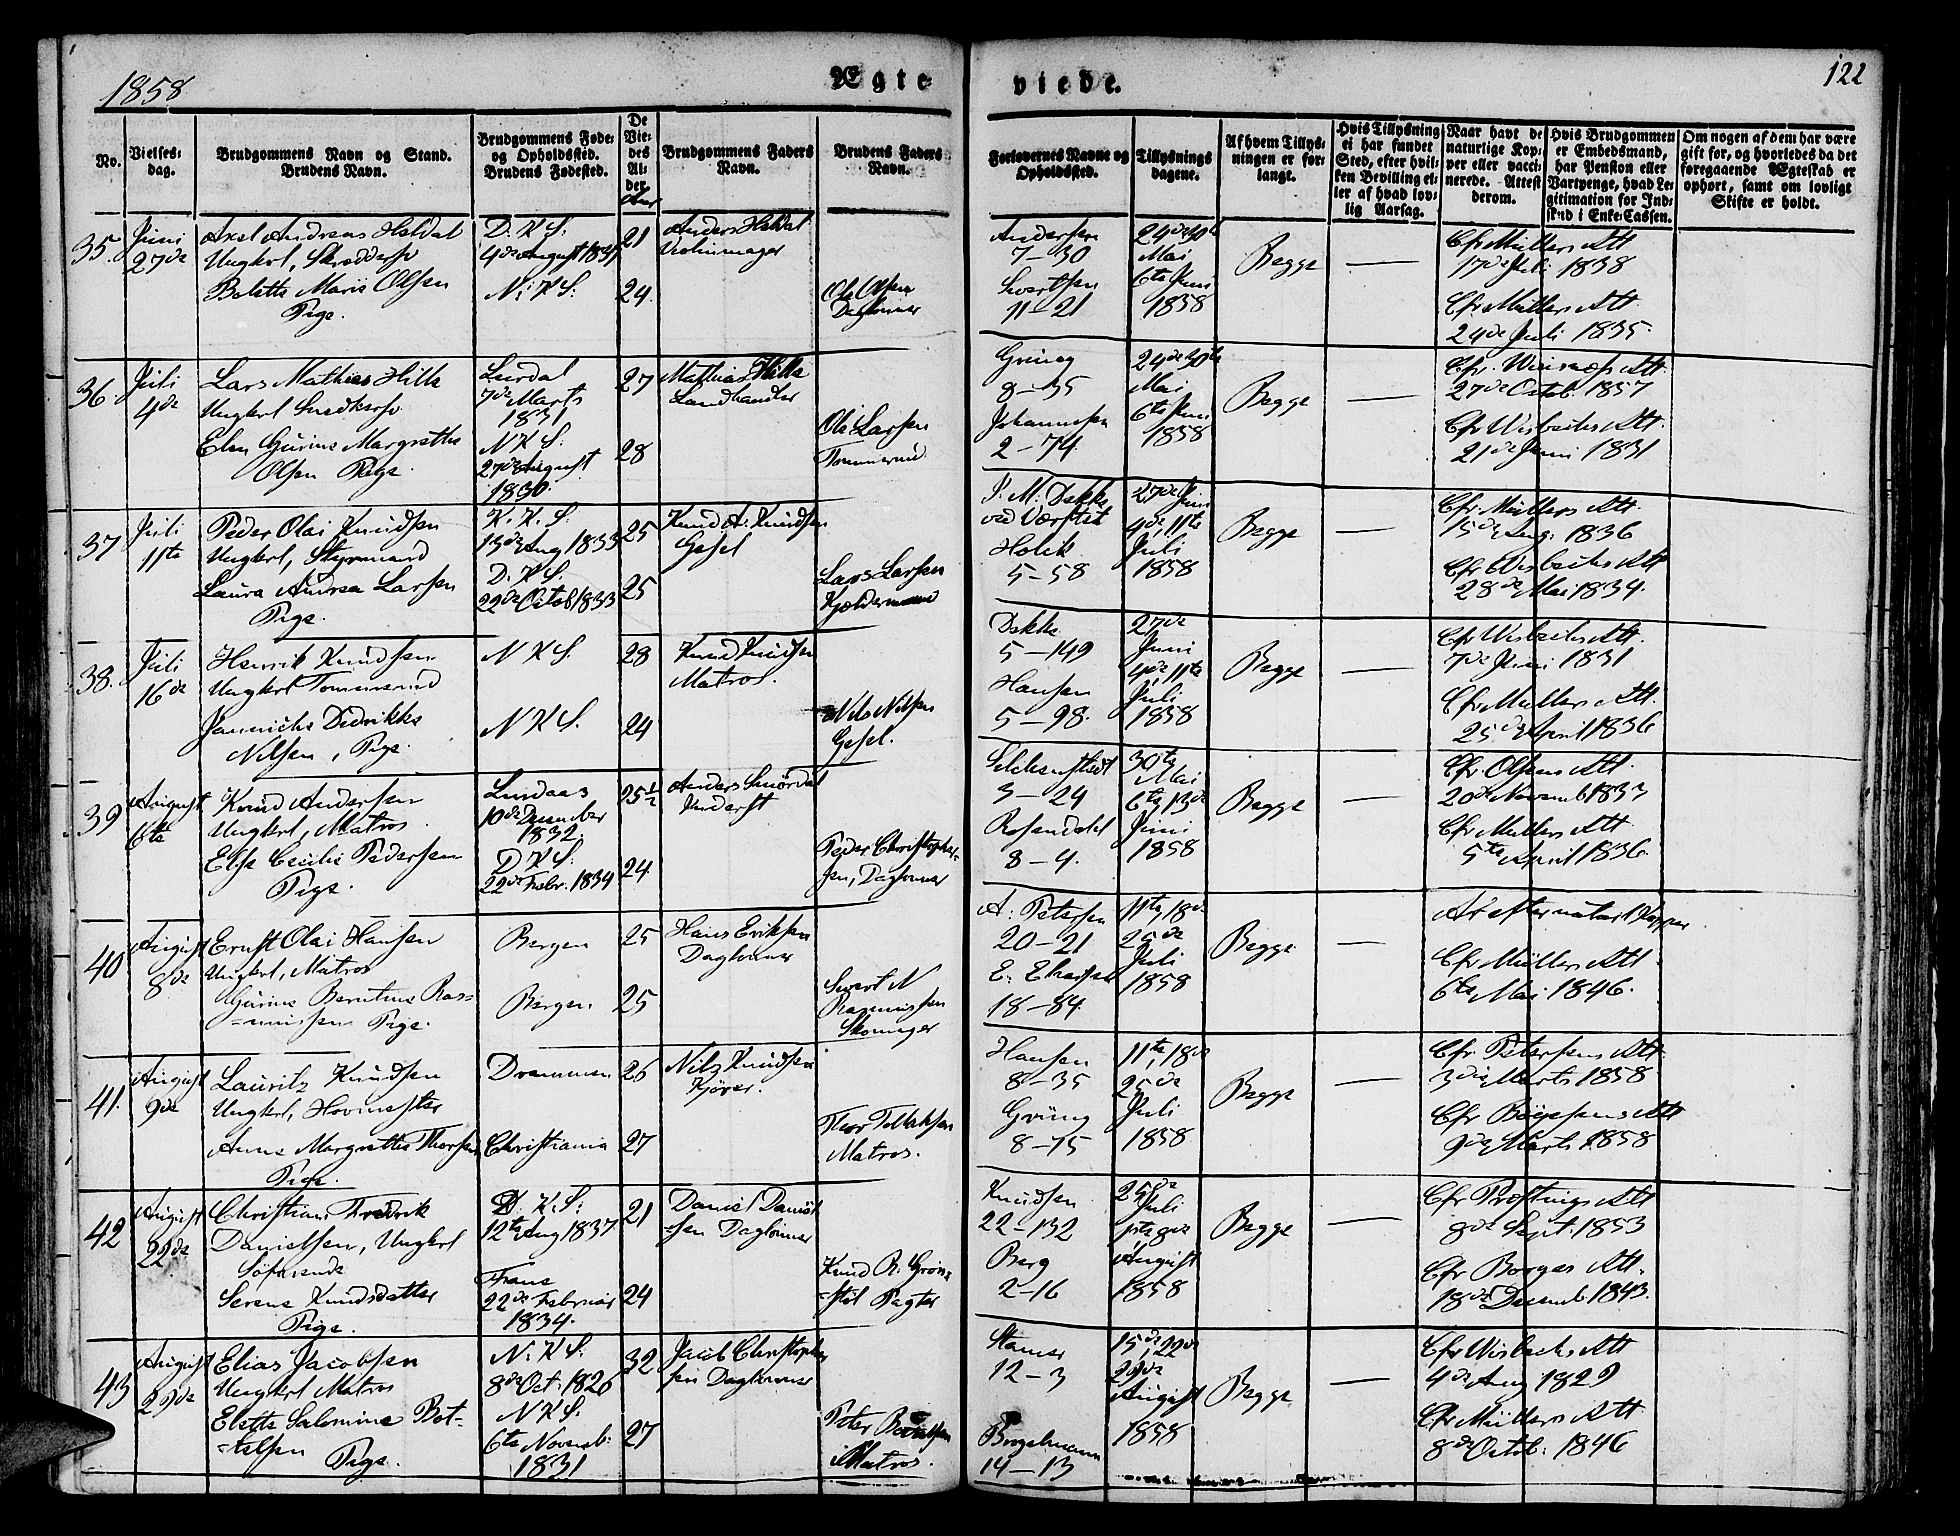 1858
Ægte
viede.
122
No.
Vielses-
dag.
Brudgommens Navn og Stand.
Brudens Navn.
Brudgommens Føde-
og Opholdssted.
Brudens Fødested.
De
Vie-
des
Al-
der.
Aar
Brudgommens Faders
Navn.
Brudens Faders
Navn.
Forlovernes Navne og
Opholdssted.
Tillysnings
dagene.
Af hvem Tillys-
ningen er for-
langt.
Hvis Tillysning
ei har fundet
Sted, efter hvil-
ken Bevilling el-
ler af hvad lov-
lig Aarsag.
Naar havt de
naturlige Kop-
per eller vacci-
nerede. Attest
derom.
Hvis Brudgommen
er Embedsmand,
har Pension eller
Vartpenge, hvad Le-
gitimation for Ind-
skud i Enke-Cassen.
Om nogen af dem har være
gift før, og hvorledes da det
foregaaende Ægteskab er
ophørt, samt om lovligt
Skifte er holdt.
35.
Juni
27de
Axel Andreas Heldal
Ungkrl,
Beletta Marie Olsen
Pige.
D. K. S.
4de August
N. K. S.
21
24.
Anders Heldal
Ole Olsen
Daglönner
Andersen
7-30
Sivertsen
11-21
24de 30te
Mai
6te Juni
1858
Begge
Cfr Müllers Att
17de Juli 1838
Cfr Müllers Att
24de Juli 1835.
36
Juli
4de
Lars Mathias Hille
Ungkrl
Elen Gurine Margrethe
Olsen Pige.
7de Marts
1831
N K S.
27de August
1830.
27
28
Mathias Hille
Landhandler
Ole Larsen
Tømmermd
Grüng
8-35
Johannesen
2-74.
24de 30te
Mai
6te Juni
1858
Begge
27de Octob. 1857
Cfr Wisbechs Att.
21de Juni 1831
37
Juli
11te
Peder Olai Knudsen
Ungkrl, Styrmand
Laura Andrea Larsen
Pige.
K. K. S.
13de Aug 1833
D. K. S.
22de Octob 1833
25
25
Knud A. Knudsen
Gesel
Lars Larsen
J. M. Dekke
ved Værftet
5-58
27de Juni
4de, 11te
Juli
1858
Begge
Cfr. Müllers Att.
15de Aug: 1836
Cfr Wisbechs Att
28de Mai 1834.
38.
Juli
16de
Henrik Knudsen
Ungkrl Tømmermd
Jannicke Didrikke
Nilsen, Pige.
N K S.
N K S.
28
24
Knud Knudsen
Matros.
Nils Nilsen
Gesel.
Dekke
5-149
Hansen
5-98.
27de
Juni
4de, 11te
Juli
1858
Begge
Cfr Wisbechs Att.
7de Juni 1831
Cfr. Müllers Att.
25de April 1836
39
August
6te
Knud Andersen
Ungkrl, Matros.
Else Cecilie Pedersen
Pige.
Lindaas
10de December
1832.
D. K S.
22de Febr. 1834
25½
24
Peder Christopher-
sen, Daglönner
3-24
Rosendahl
8-4.
30te
Mai
6te, 13de
Juni
1858
Begge
Cfr. Olsens Att.
20de Novemb 1833
Cfr. Müllers Att.
5te April 1836.
40
August
8de
Ernst Olai Hansen
Ungkrl, Matros
Gurine Berntine Ras-
=mussen Pige.
Bergen
Bergen
25
25
Hans Eriksen
Daglönner
Sivert N
Rasmussen
Skomager
A. Petersen
20-21
18-84.
11te, 18de
25de
Juli
1858
Begge
Ar efter naturl Kopper
Cfr Müllers Att
6te Mai 1846.
41.
August
9de
Lauritz Knudsen
Ungkrl, Hovmester
Anne Margrethe Thorsen
Pige.
Drammen
Christiania
26
27
Nils Knudsen
Kjører.
Thor Tollaksen
Matros.
Hansen
8-35
Grüng
8-75
11te, 18de
25de
Juli
1858
Begge
Cfr. Petersens Att
3die Marts 1858
Cfr Böysens Att
9de Marts 1858
42
August
22de
Christian Fredrik
Danielsen, Ungkrl
Söfarende
Serene Knudsdatter
Pige.
D. K. S.
12te Aug 1837
22de Februar
1834.
21
24
Daniel Daniel
-sen Daglönner
Knud R. Grön-
Pagter
Knudsen
22-132
Berg
2-16
25de
Juli
1ste 8de
August
1858
Begge
8de Sept. 1853
Cfr Borges Att.
18de Decemb 1843.
43
August
29de
Elias Jacobsen
Ungkrl Matros
Elette Salomine Bot-
=telsen Pige.
N. K S.
8de Oct. 1826
N. K S.
6te Novemb:
1831
32
27
Jacob Christopher
sen Daglönner
Peter
Matros.
Stamer
12-3
Bogelmann
14-13
15de, 22de
29de
August
1858
Begge
Cfr Wisbechs Att
4de Aug 1829
Cfr Müllers Att.
8de Octob. 1846